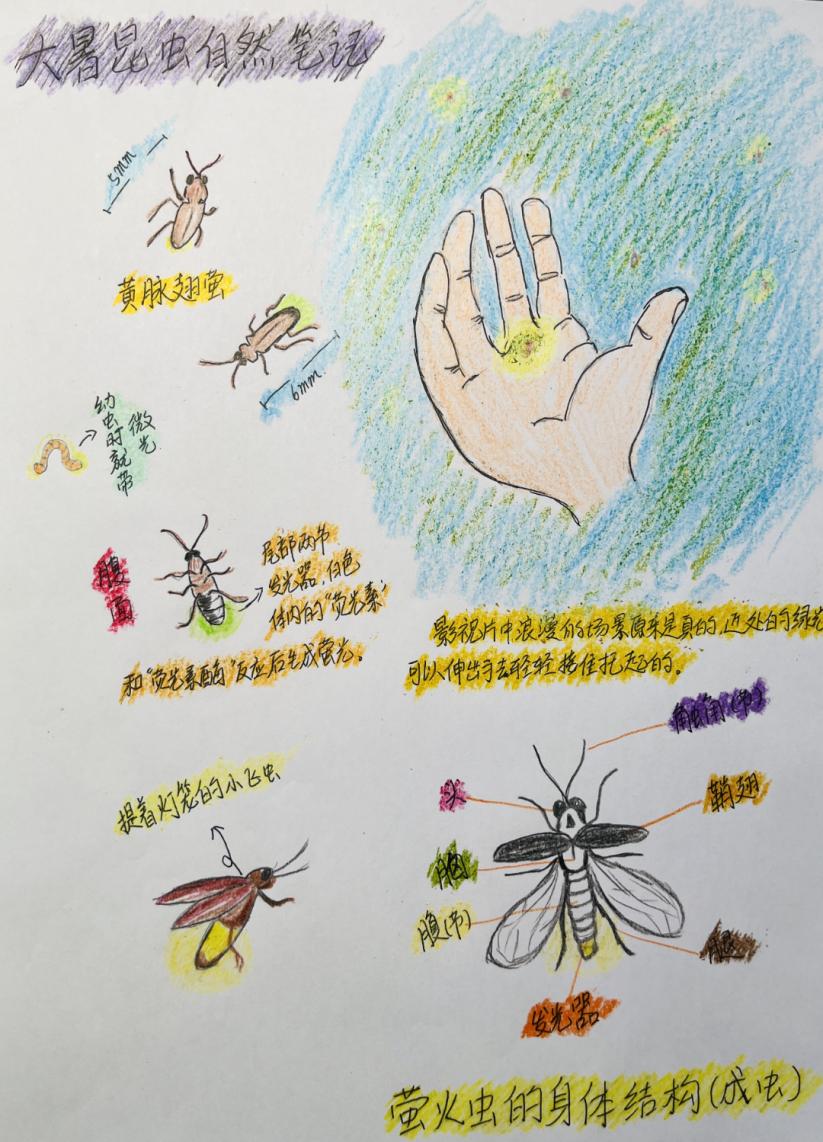 大暑昆虫自然笔记
5mm
黄脉翅萤
6mm
幼虫时就带
微光
腹面
尾部两节
发光器,白色
体内的“荧光素”
和“荧光素酶”反应后生成萤光。
影视片中浪漫的场景原来是真的,近处的绿光
可以伸出手去轻轻接住托起的。
提着灯笼的小飞虫
触角(节)
头
鞘翅
胸
腹(节)
腿
发光器
萤火虫的身体结构(成虫)